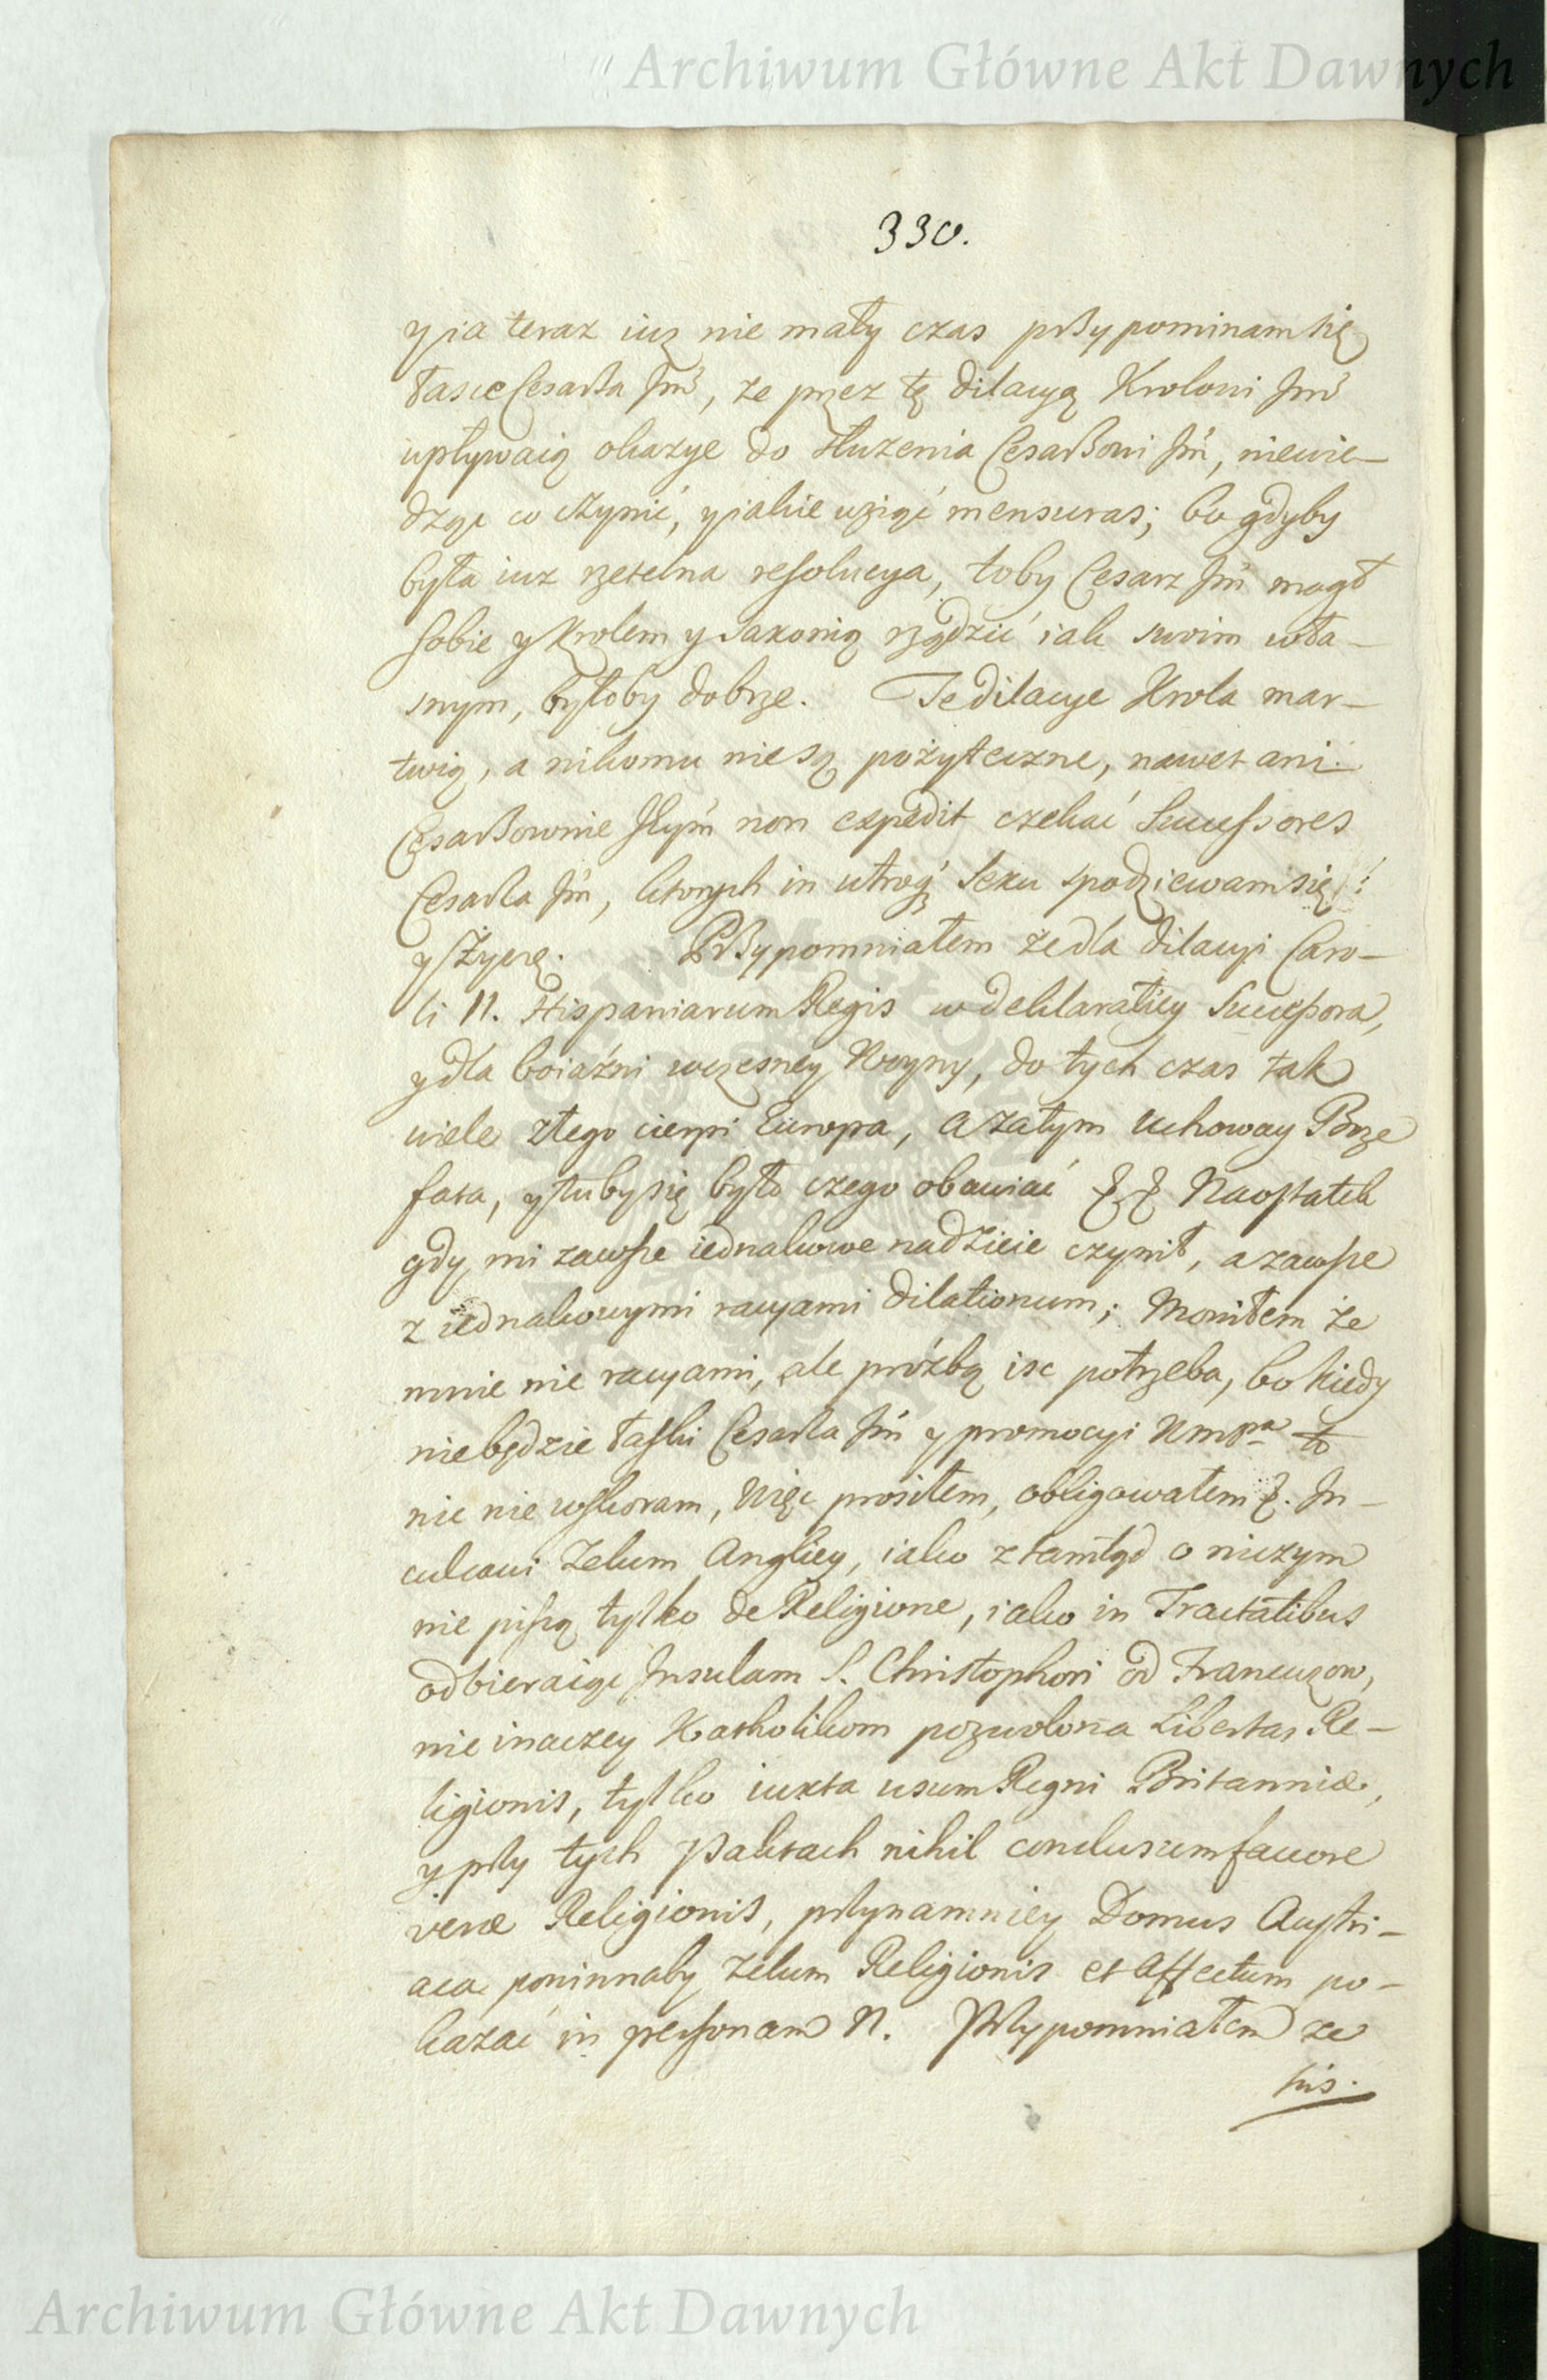 Archiwum Główne Akt Dawnych
330.
y ia teraz iuż nie mały czas przypominam się
łasce Cesarza Jmć, że przez tę dilacyą Krolowi Jmć
upływaią okazye do służenia Cesarzowi Jmć, niewie-
dząc co czynić, y iakie wziąć mensuras; bo gdyby
była iuz rzetelna resolucya, toby Cesarz Jmć mogł
sobie y Krolem y Saxonią rządzić iak swoim wła-
snym, byłoby dobrze. Te dilacye Krola mar-
twią, a nikomu nie są pożyteczne, nawet ani
Cesarzownie Jeyḿ non expedit czekać Successores
Cesarza Jmć, ktorych in utroq; Sexu spodziewam się
y życzę. Przypomniałem że dla dilacyi Caro-
li II. Hispaniarum Regis w deklaratiey Successora,
y dla boiaźni wczesney Woyny, do tych czas tak
wiele złego cierpi Europa, a zatym uchoway Boże
fata, y tuby się było czego obawiać &&. Naostatek
gdy mi zawsze iednakowe nadzieie czynił, a zawsze
z iednakowymi racyami dilationum; Moniłem że
mnie nie racyami, ale prózbą isc potrzeba, bo kiedy
niebędzie łaski Cesarza Jmć y promocyi Wmpa to
nic nie wskoram, Więc prosiłem, obligowałem &. In-
culcavi Zelum Angliey, iako ztamtąd o niczym
nie piszą tylko de Religione, iako in Tractatibus
odbieraiąc Insulam S. Christophori od Francuzow,
nie inaczey Katholikom pozwolona Libertas Re-
ligionis, tylko iuxta usum Regni Britanniæ,
y przy tych Paktach nihil conclusum favore
veræ Religionis, przynamniey Domus Austri-
aca powinnaby Zelum Religionis et affectum po-
kazać in personam N. Przypomniałem ze
his.
Archiwum Główne Akt Dawnych